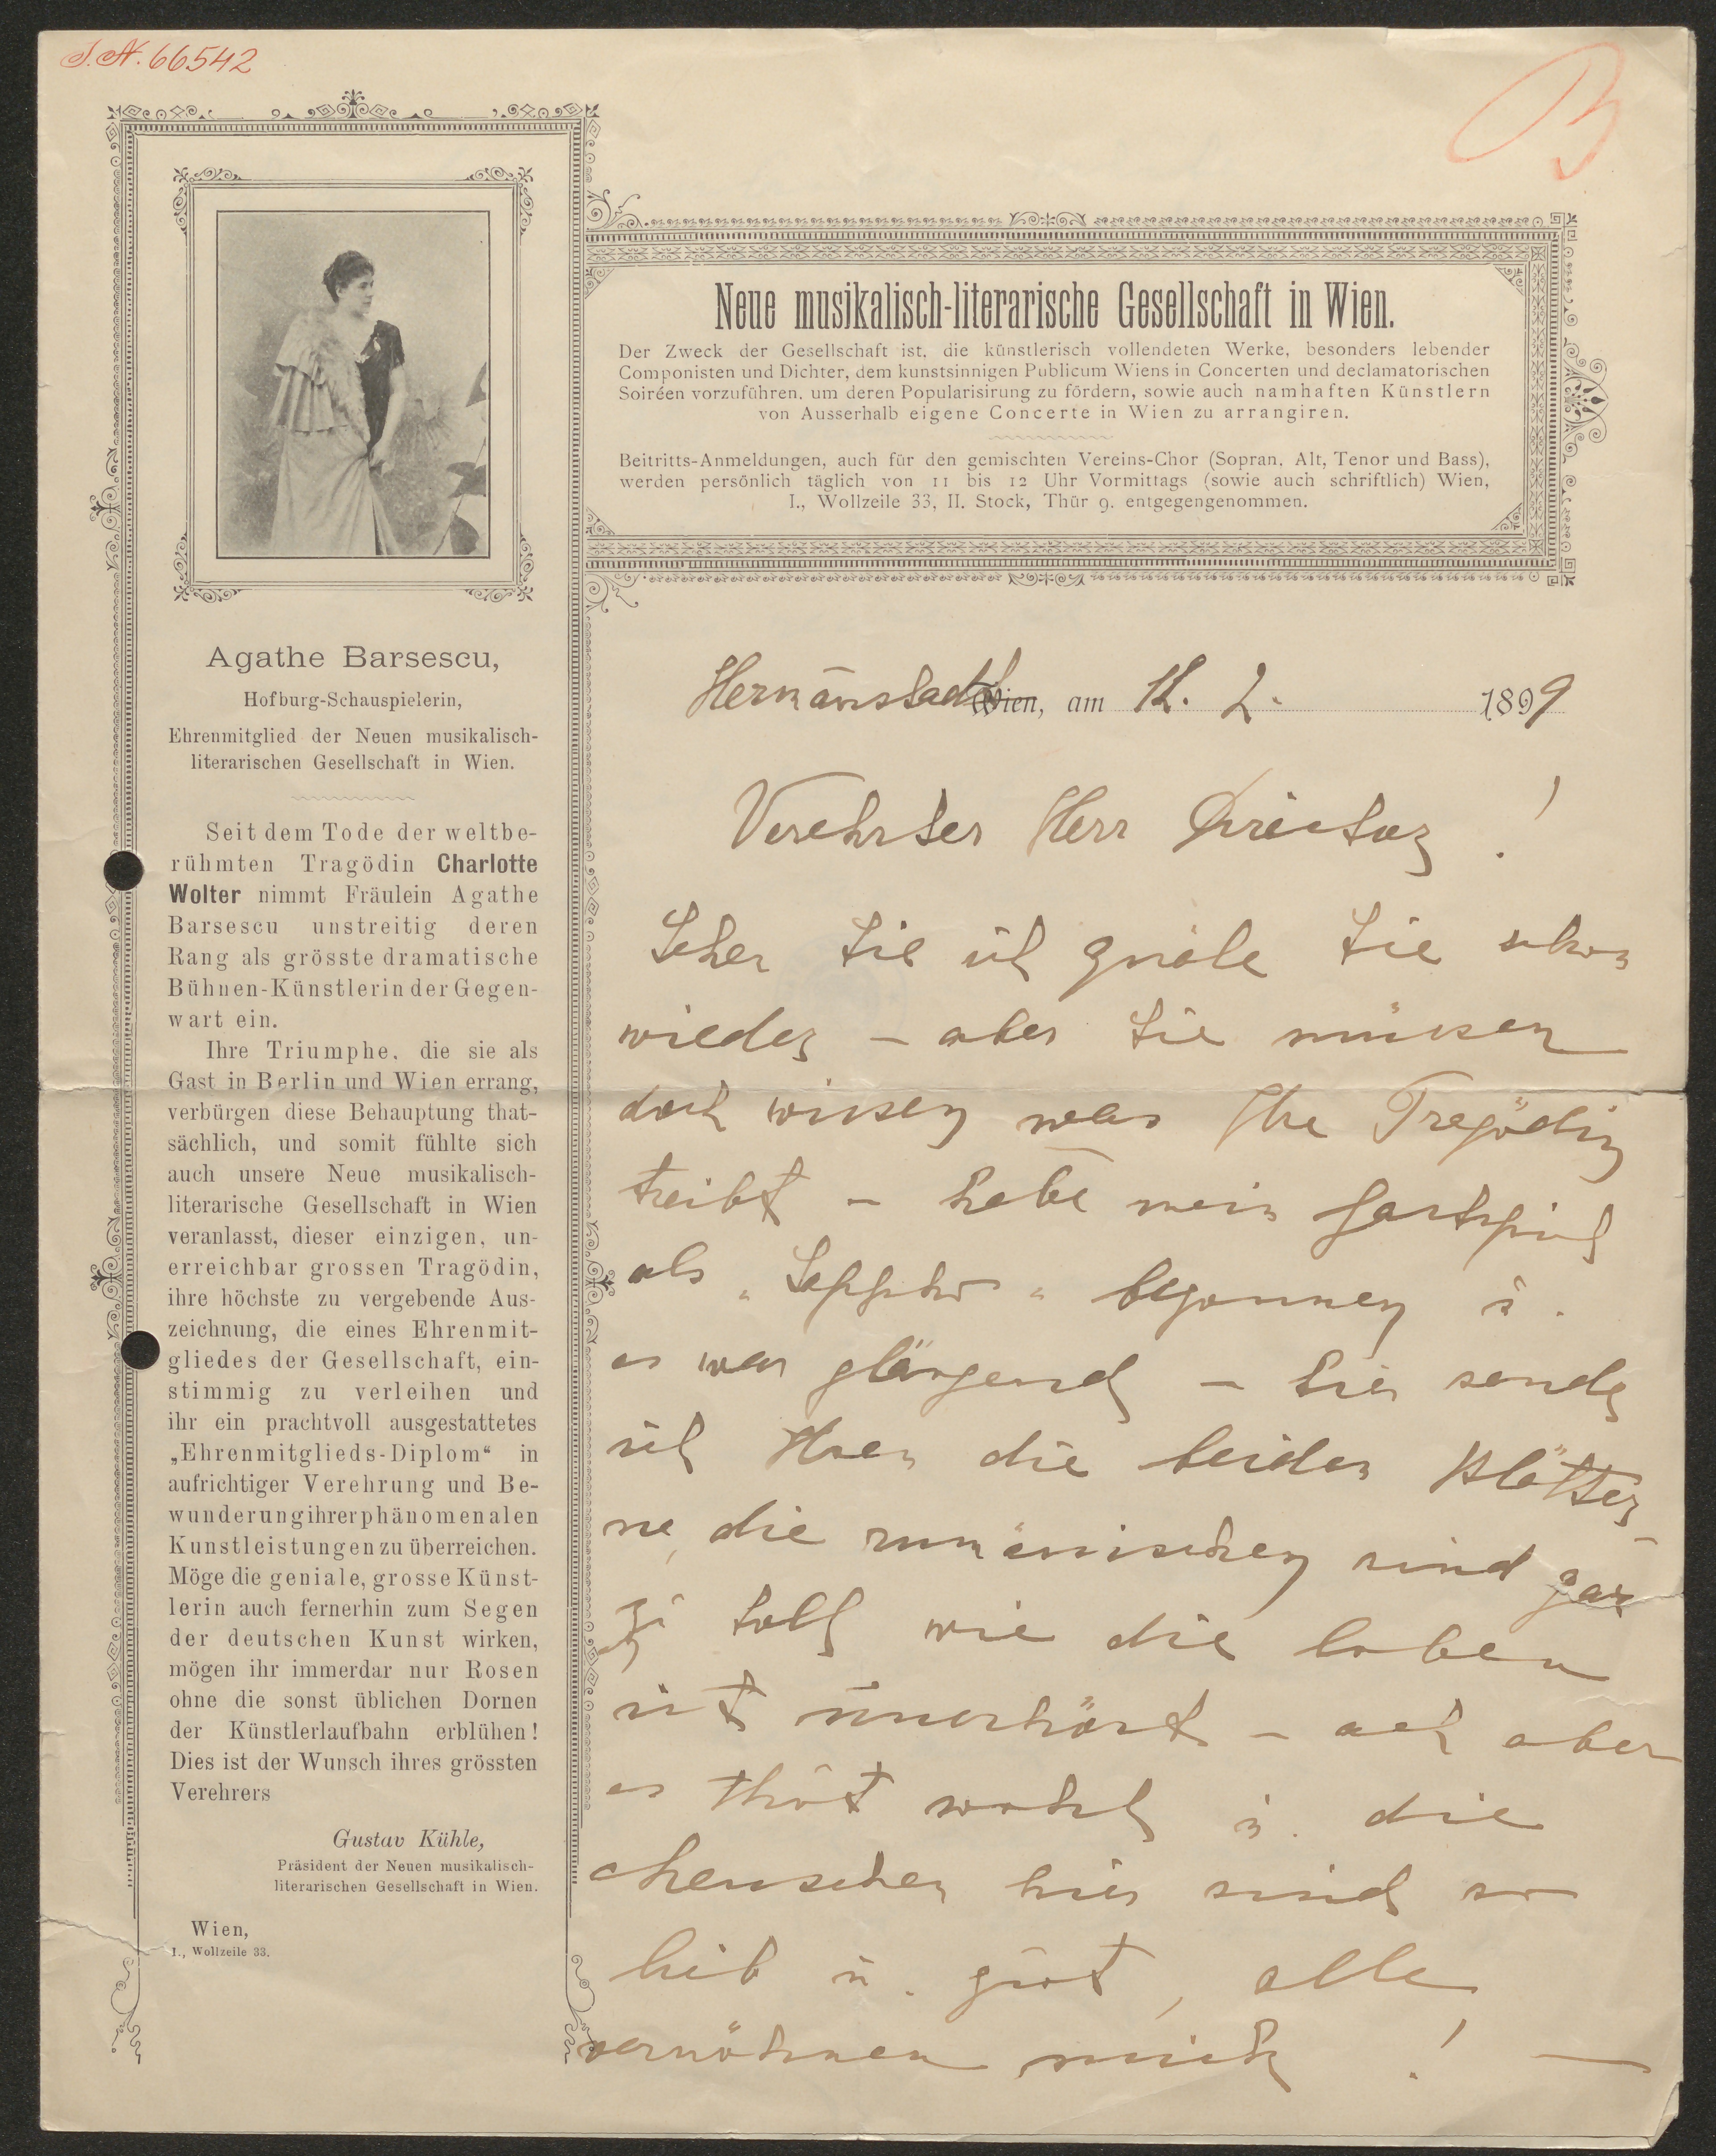 I.N. 66542
B
Agathe Barsescu,
Hofburg-Schauspielerin,
Ehrenmitglied der Neuen musikalisch-
literarischen Gesellschaft in Wien.
Seit dem Tode der weltbe-
rühmten Tragödin Charlotte
Wolter nimmt Fräulein Agathe
Barsescu unstreitig deren
Rang als grösste dramatische
Bühnen-Künstlerin der Gegen-
wart ein.
Ihre Triumphe, die sie als
Gast in Berlin und Wien errang,
verbürgen diese Behauptung that-
sächlich, und somit fühlte sich
auch unsere Neue musikalisch-
literarische Gesellschaft in Wien
veranlasst, dieser einzigen, un-
erreichbar grossen Tragödin,
ihre höchste zu vergebende Aus-
zeichnung, die eines Ehrenmit-
gliedes der Gesellschaft, ein-
stimmig zu verleihen und
ihr ein prachtvoll ausgestattetes
„Ehrenmitglieds-Diplom“ in
aufrichtiger Verehrung und Be-
wunderung ihrer phänomenalen
Kunstleistungen zu überreichen.
Möge die geniale, grosse Künst-
lerin auch fernerhin zum Segen
der deutschen Kunst wirken,
mögen ihr immerdar nur Rosen
ohne die sonst üblichen Dornen
der Künstlerlaufbahn erblühen!
Dies ist der Wunsch ihres grössten
Verehrers
Gustav Kühle,
Präsident der Neuen musikalisch-
literarischen Gesellschaft in Wien.
Wien,
I., Wollzeile 33.
Neue musikalisch-literarische Gesellschaft in Wien.
Der Zweck der Gesellschaft ist, die künstlerisch vollendeten Werke, besonders lebender
Componisten und Dichter, dem kunstsinnigen Publicum Wiens in Concerten und declamatorischen
Soiréen vorzuführen, um deren Popularisirung zu fördern, sowie auch namhaften Künstlern
von Ausserhalb eigene Concerte in Wien zu arrangiren.
Beitritts-Anmeldungen, auch für den gemischten Vereins-Chor (Sopran, Alt, Tenor und Bass),
werden persönlich täglich von 11 bis 12 Uhr Vormittags (sowie auch schriftlich) Wien,
I., Wollzeile 33, II. Stock, Thür 9, entgegengenommen.
Hermannstadt Wien, am 12. 2. 1899
Verehrter Herr Director!
Sehen Sie ich quäle Sie schon
wieder – aber Sie müssen
doch wissen was Ihre Tragödin
treibt – habe mein Gastspiel
als „Sappho“ begonnen u.
es war glänzend – hier sende
ich Ihnen die beiden Blätter –
ne, die rumänischen sind gar
zu toll wie die loben
ist unerhört – ach aber
es thut wohl u. die
Menschen hier sind so
lieb u. gut, alle
verwöhnen mich! –